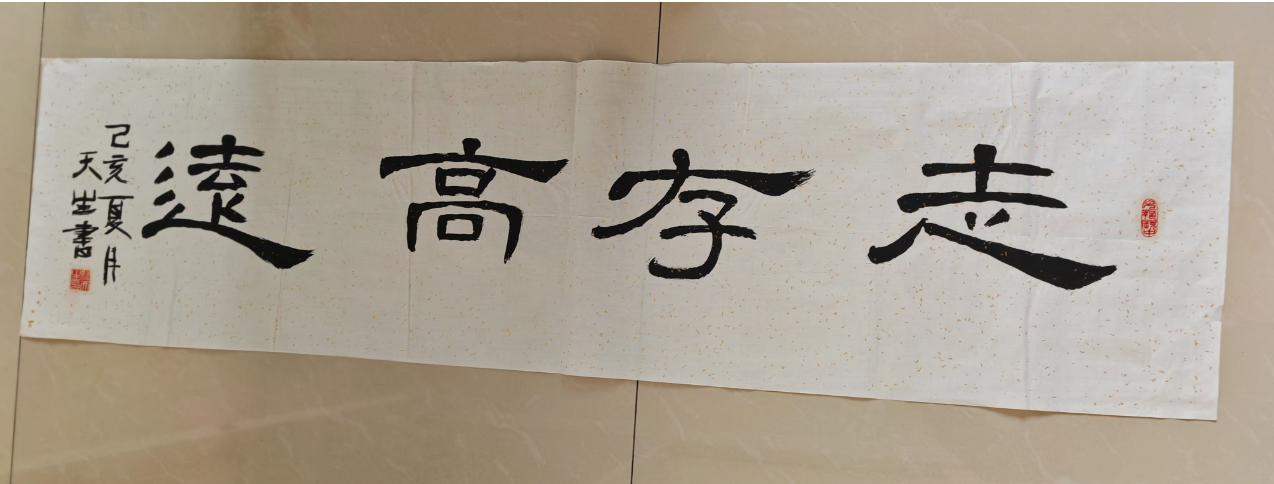 志存高遠
己亥夏月
天生書